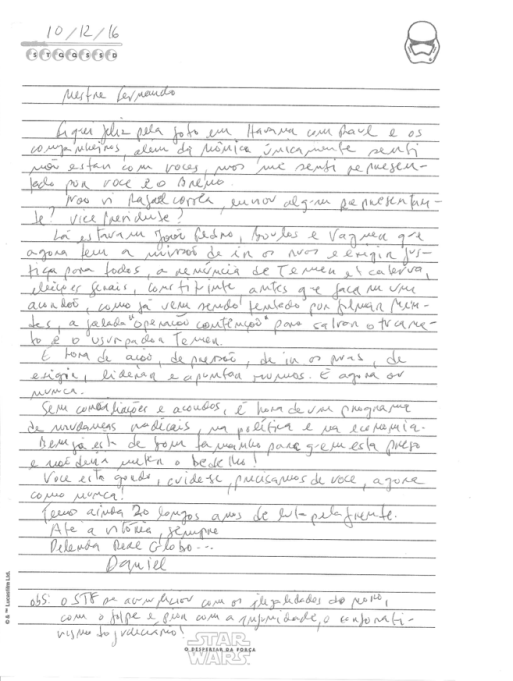 10/12/16
S T Q Q S S D
Mestre Fernando
Fiquei feliz pela foto em Havana com Raul e os
companheiros, além da Mônica únicamente senti
não estar com voces, mas me senti represen-
tado por voce e o Breno.
Não vi Rafael Correa, enviou algum representan-
te? vice presidente?
Lá estavam João Pedro, Boulos e Vagner que
agora tem a missão de ir as ruas e exigir jus-
tiça para todos, a renúncia de Temer et caterva,
eleições gerais, constituinte antes que façam um
acordão, como já vem sendo tentado por Gilmar Men-
des, a falada "operação contenção" para salvar o
e o usurpador Temer.
É hora de ação, de pressão, de ir as ruas, de
exigir, liderar e apontar rumos. É agora ou
nunca.
Sem conciliações e acordos, é hora de um programa
de mudanças radicais, na política e na economia.
Bem já está de bom tamanho para quem está preso
e não devia meter o bedelho!
Voce esta querido, cuide-se, precisamos de voce, agora
como nunca!
Temos ainda 20 longos anos de luta pela frente.
Até a vitória, sempre
Delenda Rede Globo...
Daniel
obs: o STF se acumpliciou com as ilegalidades do
com o golpe e pior com a impunidade, o corporati-
vismo do judiciário!
STAR
O DESPERTAR DA FORÇA
WARS
© & ™ Lucasfilm Ltd.